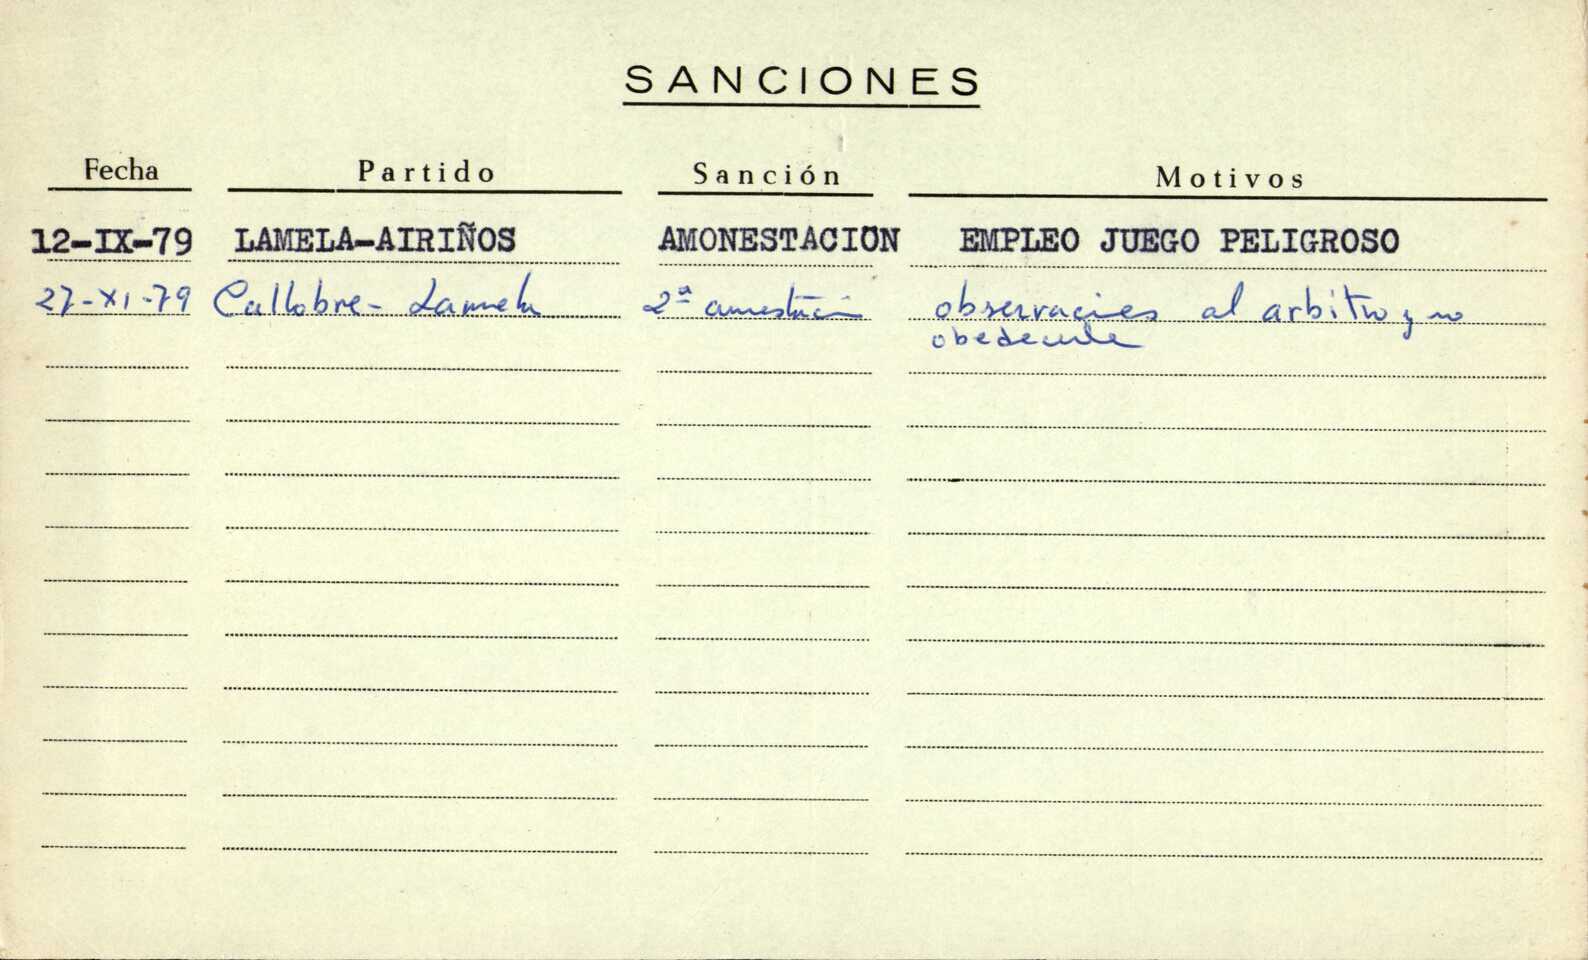 SANCIONES
Fecha Partido Sanción Motivos
12-IX-79 LAMELA-AIRIÑOS AMONESTACION EMPLEO JUEGO PELIGROSO
27-XI-79 Callobre - Lamela 2ª amonestación observaciones al arbitro y no
obedecerle